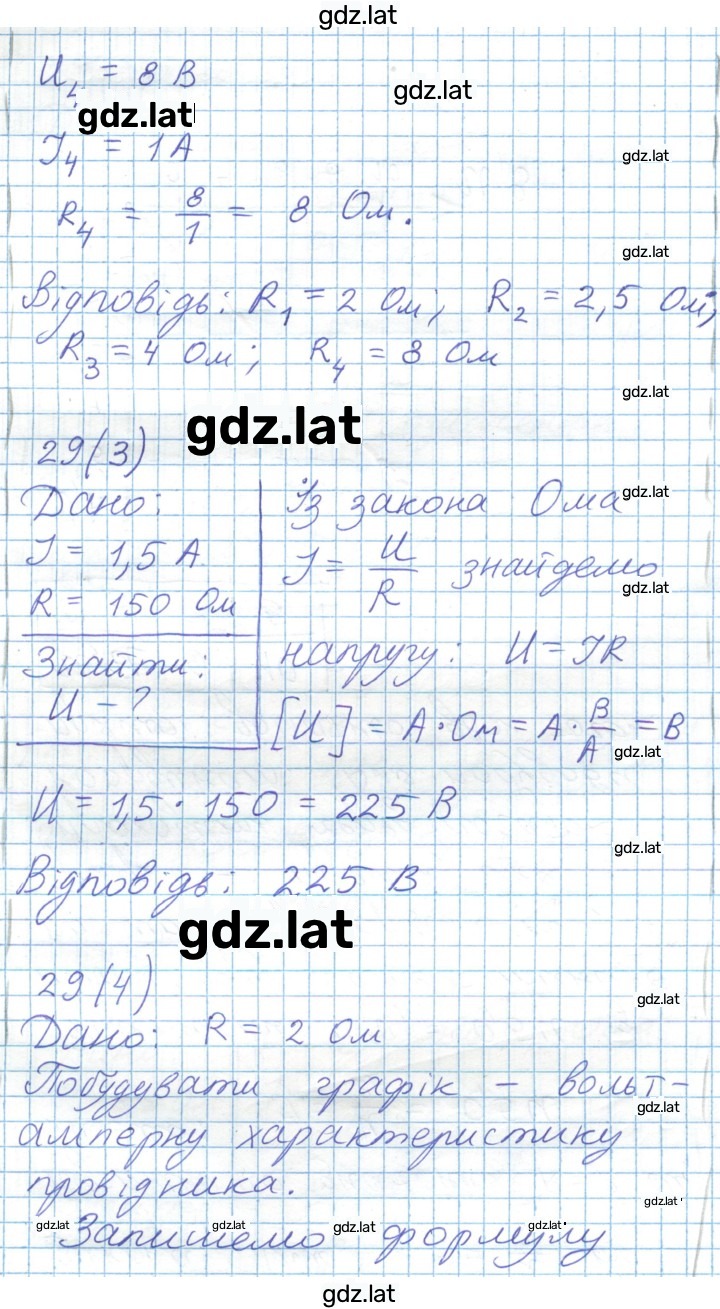 gdz.lat
U4 = 8 В
gdz.lat
gdz.lat
I4 = 1 А
gdz.lat
R4 = 8/1 = 8 Ом.
gdz.lat
Відповідь: R1 = 2 Ом; R2 = 2,5 Ом;
R3 = 4 Ом; R4 = 8 Ом
gdz.lat
gdz.lat
29(3)
Дано: Із закона Ома
gdz.lat
I = 1,5 А I = U/R знайдемо
gdz.lat
R = 150 Ом
Знайти: напругу: U = IR
U - ? [U] = А·Ом = А·В/А = В
gdz.lat
U = 1,5 · 150 = 225 В
gdz.lat
Відповідь: 225 В
gdz.lat
29(4)
gdz.lat
Дано: R = 2 Ом
Побудувати графік - вольт-
gdz.lat
амперну характеристику
провідника.
gdz.lat
gdz.lat gdz.lat gdz.lat gdz.lat
Запишемо формулу
gdz.lat